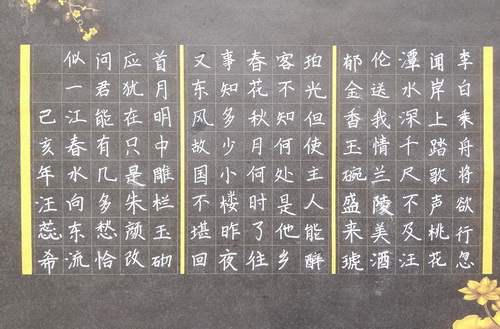 李白乘舟将欲行忽
闻岸上踏歌声桃花
潭水深千尺不及汪
伦送我情兰陵美酒
郁金香玉碗盛来琥
珀光但使主人能醉
客不知何处是他乡
春花秋月何时了往
事知多少小楼昨夜
又东风故国不堪回
首月明中雕栏玉砌
应犹在只是朱颜改
问君能有几多愁恰
似一江春水向东流
己亥年汪蕊希